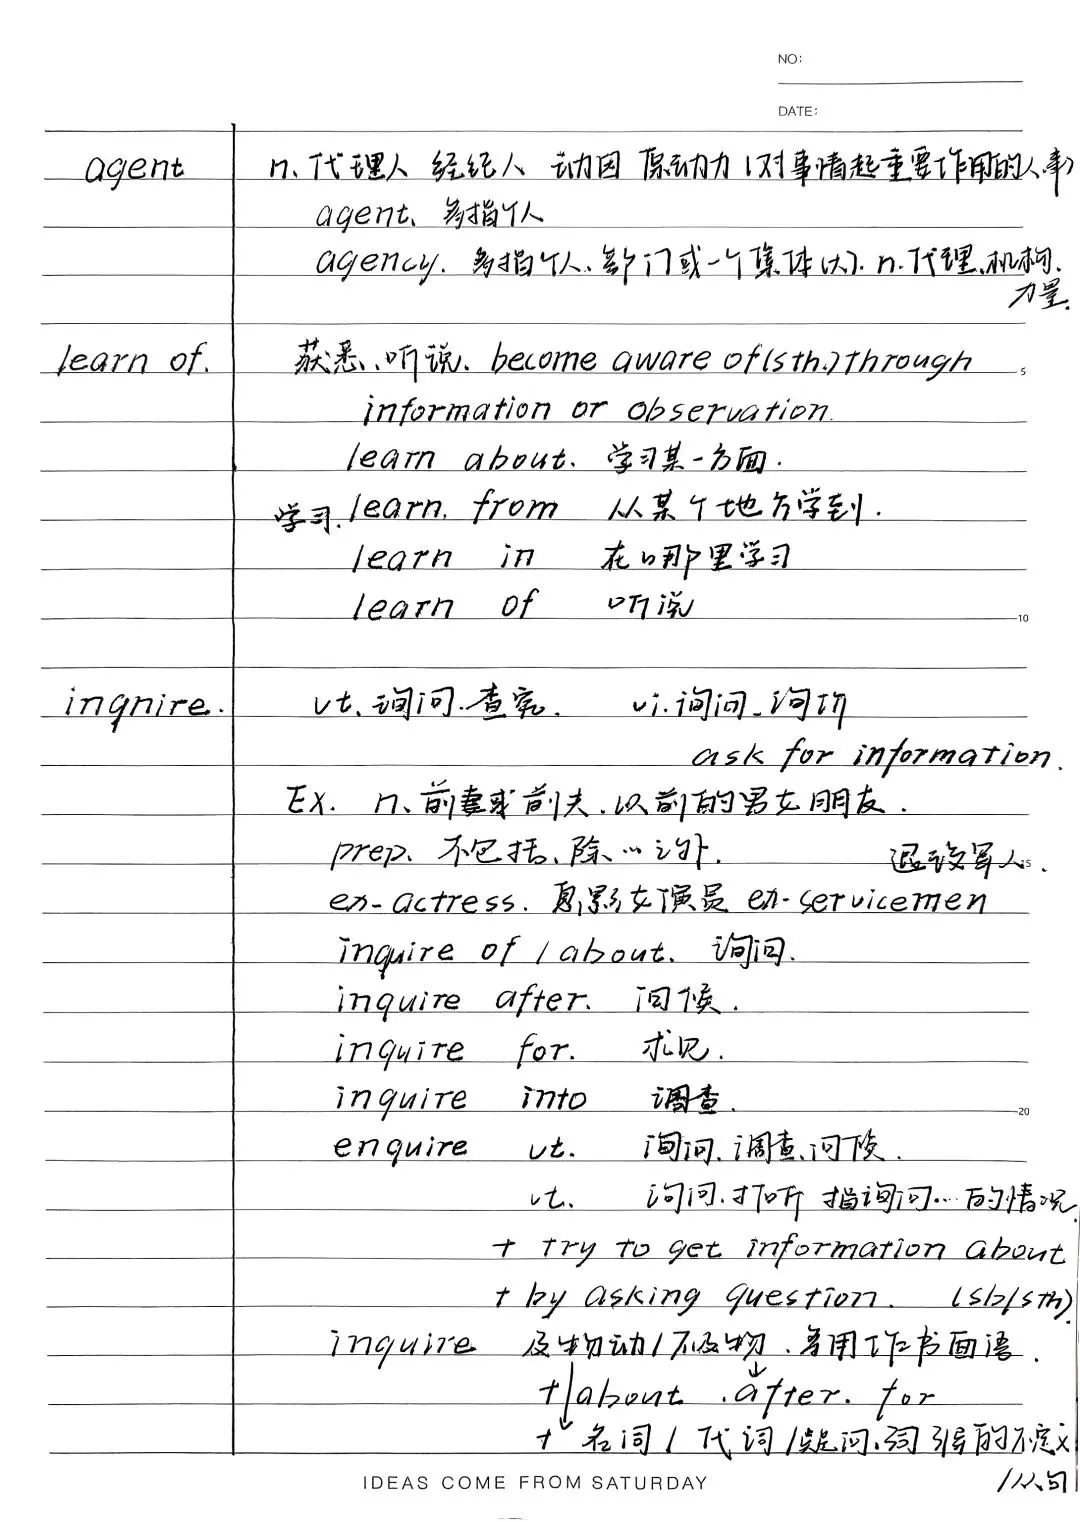 NO:
DATE:
agent n. 代理人 经纪人 动因 原动力(对事情起重要作用的人事)
agent. 多指个人
agency. 多指个人、部门或一个集体(大). n.代理、机构.
力量.
learn of. 获悉、听说. become aware of(sth.)through
5
information or observation.
learn about. 学习某一方面.
学习. learn. from 从某个地方学到.
learn in 在哪里学习
learn of 听说
10
inqnire. vt. 询问.查究. vi.询问_询价
ask for information.
Ex. n. 前妻或前夫.以前的男女朋友.
prep. 不包括、除…之外. 退役军人.
15
ex-actress. 息影女演员 ex-servicemen
inquire of / about. 询问.
inquire after. 问候.
inquire for. 求见.
inquire into 调查.
20
enquire vt. 询问、调查、问候.
vt. 询问.打听 指询问…的情况.
+ try to get information about
+ by asking question. (sb/sth)
inquire 及物动/不及物.多用作书面语.
+ about .after. for
+ 名词 / 代词 /疑问.词 引导的不定式
/从句
IDEAS COME FROM SATURDAY